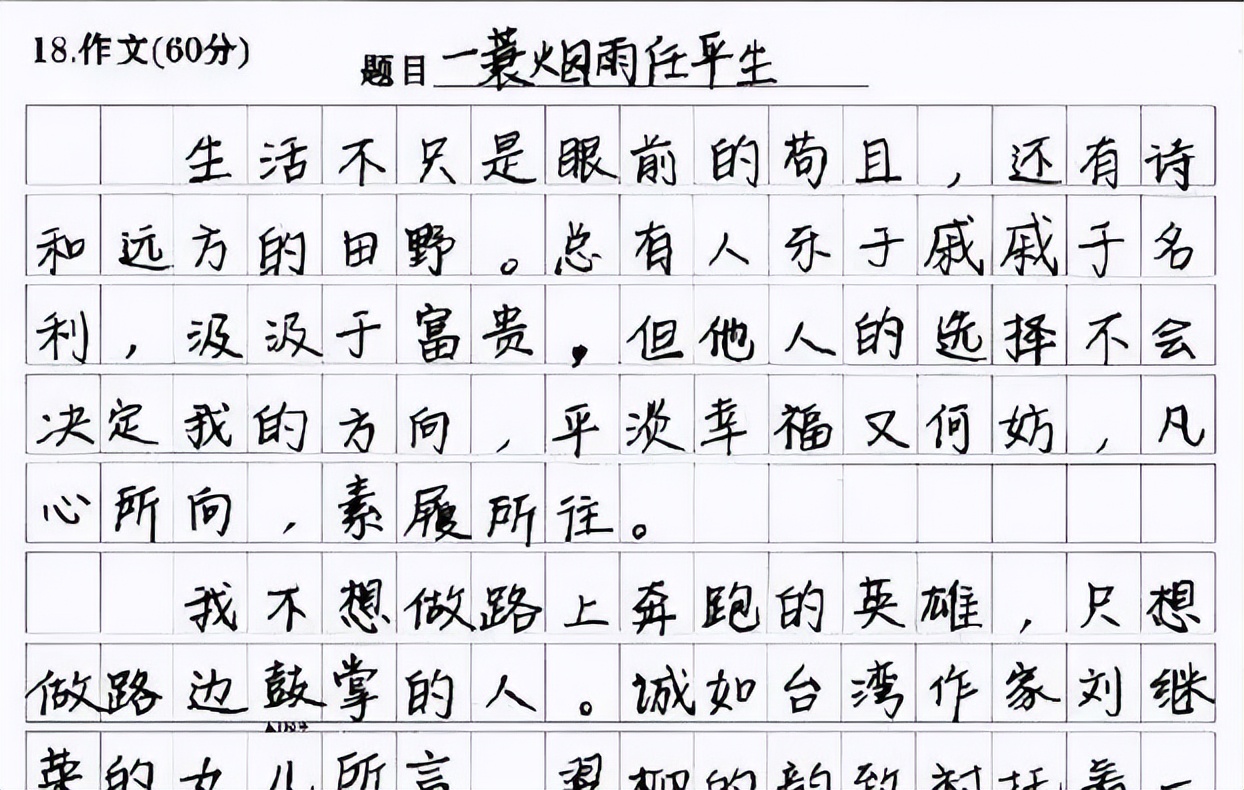 18.作文(60分)
题目 一蓑烟雨任平生
生活不只是眼前的苟且，还有诗
和远方的田野。总有人乐于戚戚于名
利，汲汲于富贵，但他人的选择不会
决定我的方向，平淡幸福又何妨，凡
心所向，素履所往。
我不想做路上奔跑的英雄，只想
做路边鼓掌的人。诚如台湾作家刘继
荣的女儿所言